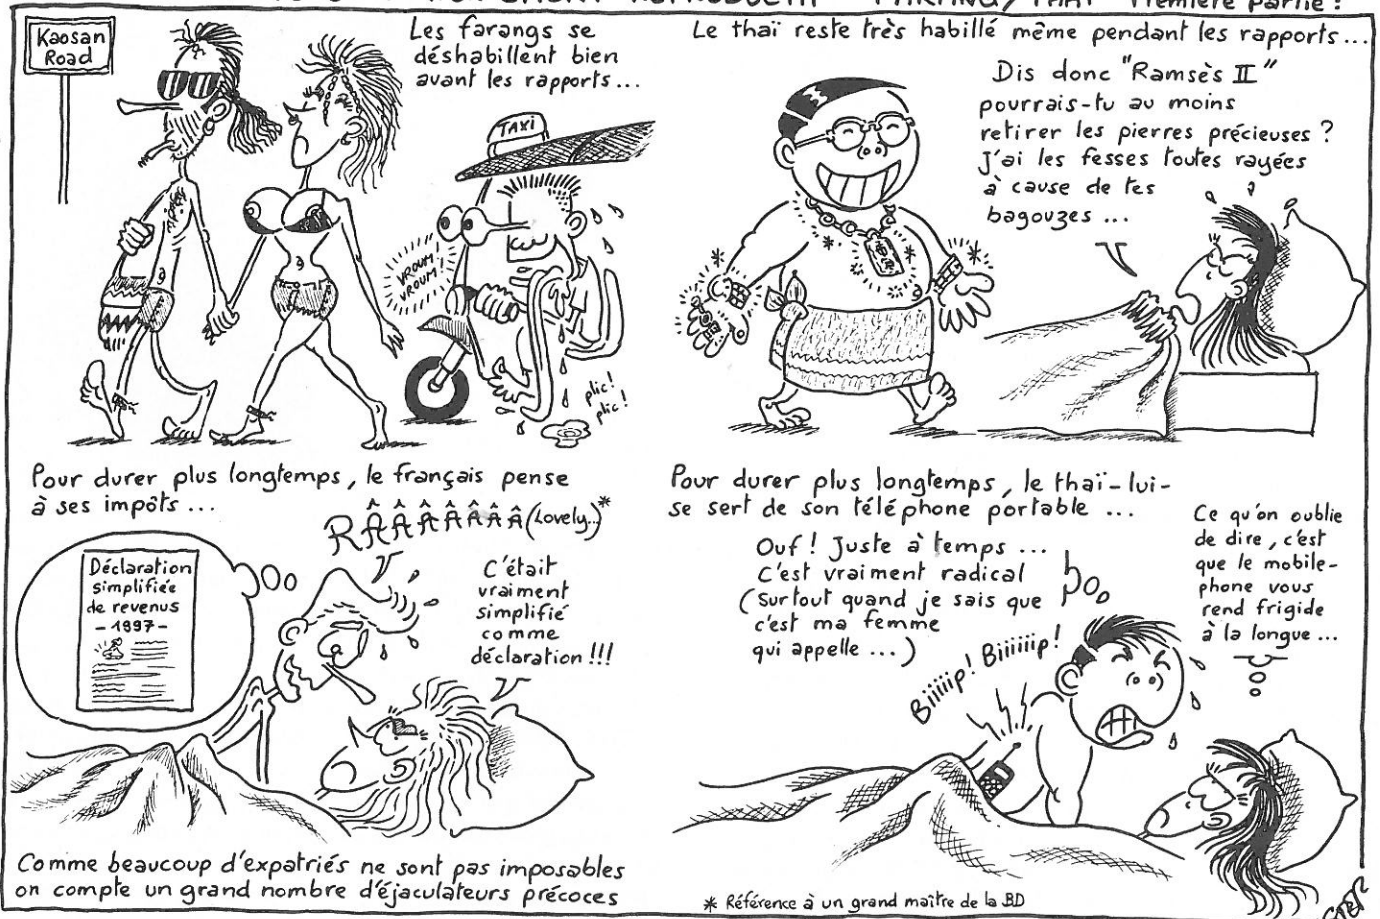 REPRODUCTIF FARANG/THAÏ Première partie :
Kaosan
Road
Les farangs se
déshabillent bien
avant les rapports...
TAXI
VROUM!
VROUM!
plic!
plic!
Le thaï reste très habillé même pendant les rapports...
Dis donc "Ramsès II"
pourrais-tu au moins
retirer les pierres précieuses ?
J'ai les fesses toutes rayées
à cause de tes
bagouzes ...
Pour durer plus longtemps, le français pense
à ses impôts ...
RÂÂÂÂÂÂÂ (Lovely..)*
Déclaration
simplifiée
de revenus
- 1997 -
C'était
vraiment
simplifié
comme
déclaration !!!
Comme beaucoup d'expatriés ne sont pas imposables
on compte un grand nombre d'éjaculateurs précoces
Pour durer plus longtemps, le thaï-lui-
se sert de son téléphone portable ...
Ouf ! Juste à temps ...
C'est vraiment radical
(Surtout quand je sais que
c'est ma femme
qui appelle ...)
Biiiiip! Biiiiiip!
Ce qu'on oublie
de dire, c'est
que le mobile-
phone vous
rend frigide
à la longue ...
* Référence à un grand maître de la BD